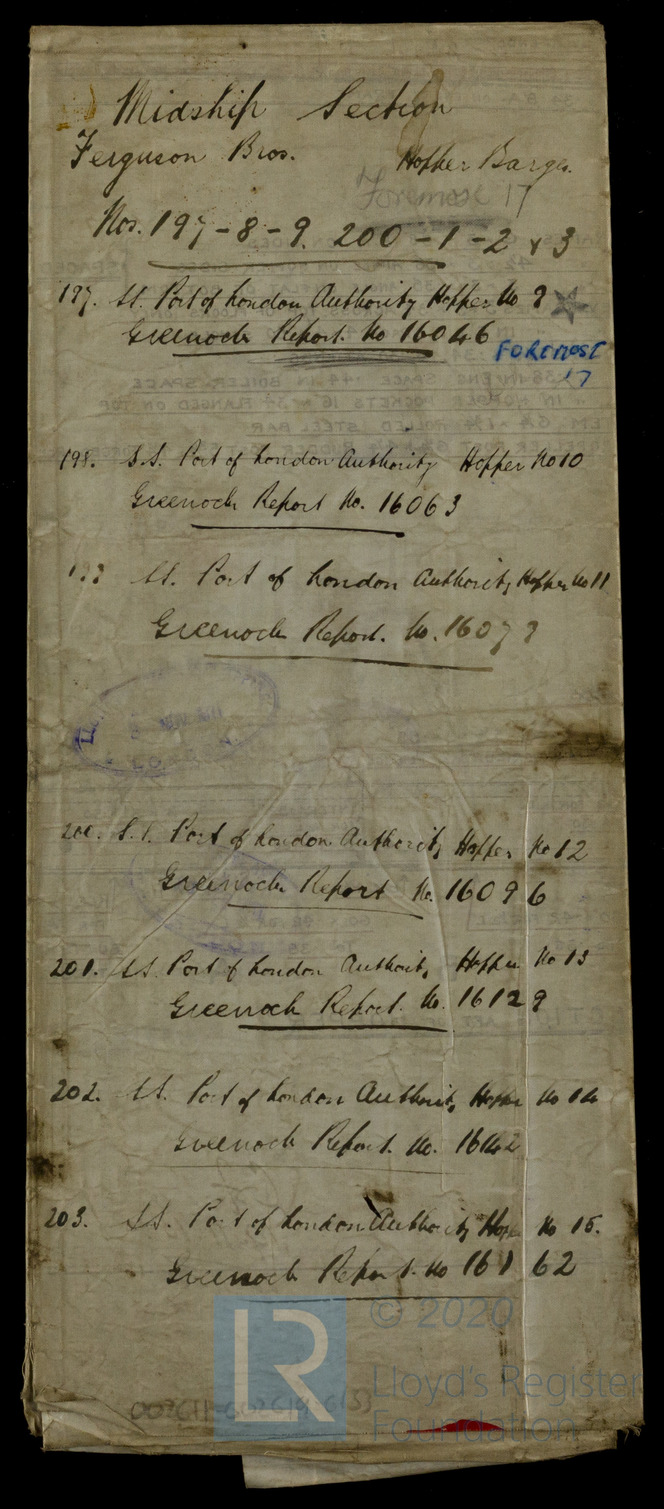 Midship Section
Ferguson Bros. Hopper Barges.
Foremost 17
Nos. 197-8-9. 200-1-2 & 3
197. SS. Port of London Authority Hopper No 9
Greenock Report. No 16046
FOREMOST
17
198. S.S. Port of London Authority Hopper No 10
Greenock Report No. 16063
199 SS. Port of London Authority Hopper No 11
Greenock Report. No. 1607
200. S.S. Port of London Authority Hopper No 12
Greenock Report No. 16096
201. SS. Port of London Authority Hopper No 13
Greenock Report. No. 16129
202. SS. Port of London Authority Hopper No 14
Greenock Report. No. 16142
203. SS. Port of London Authority Hopper No 15.
Greenock Report. No 16162
LR
© 2020
Lloyd's Register
Foundation